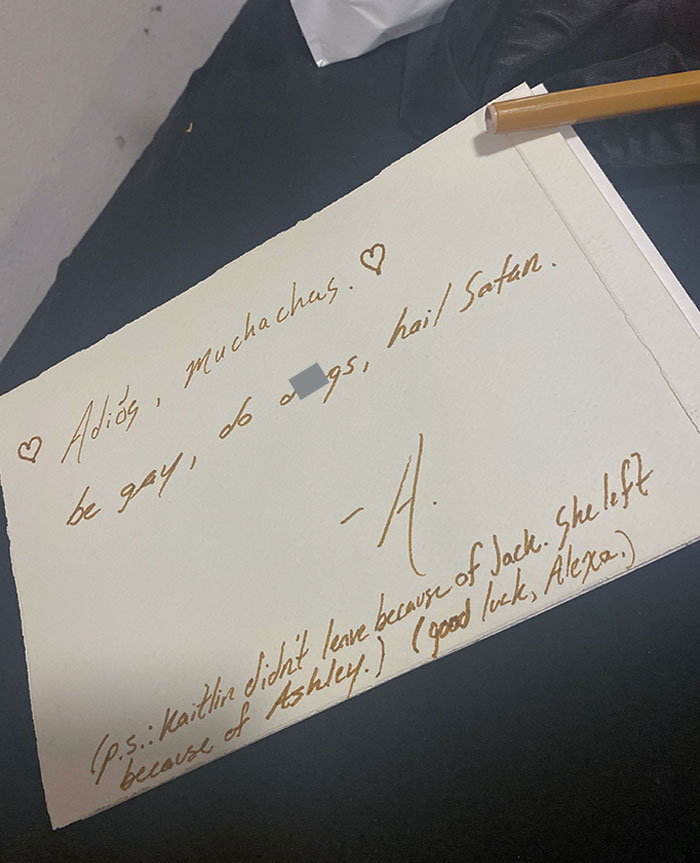 ♡ Adiós, muchachus. ♡
be gay, do d gs, hail Satan.
- A.
(p.s.: Kaitlin didn't leave because of Jack. She left
because of Ashley.) (good luck, Alexa.)